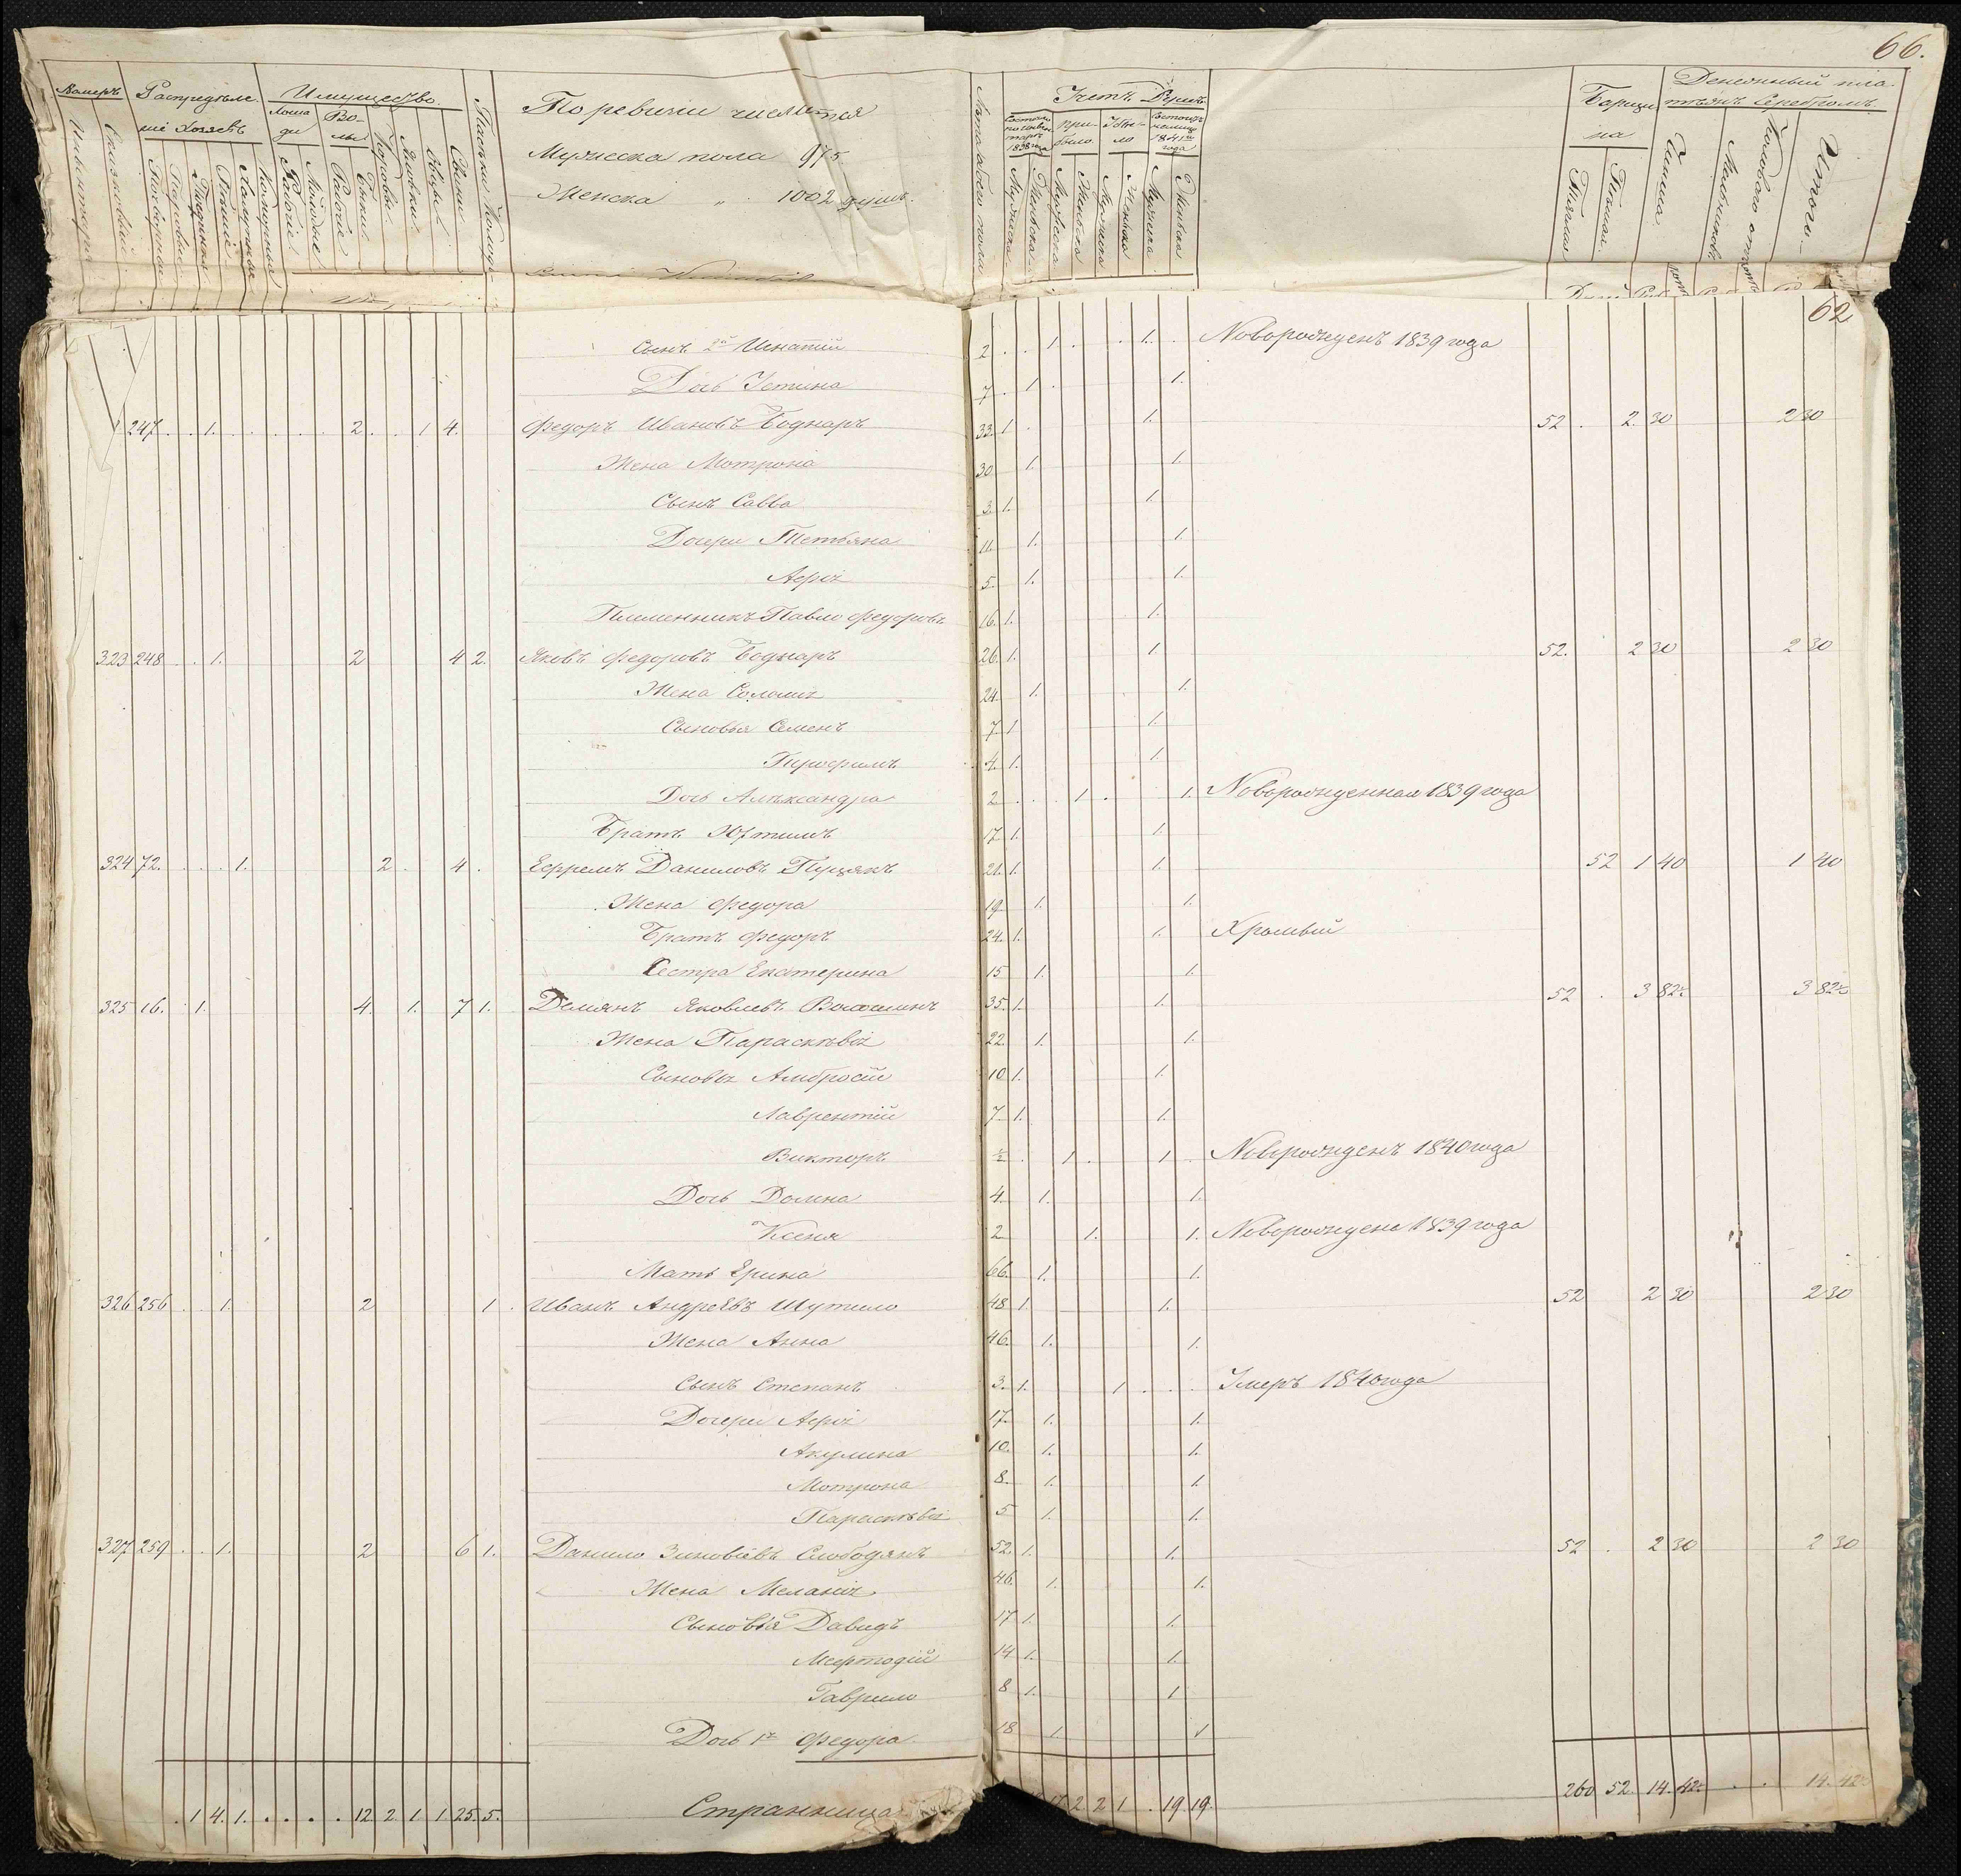 66.
Номеръ
Инвентаря
Распредѣле-
ніе хозяевъ
Тягловые
Пѣшіе
Имущество
Лоша-
ди
Рабочіе
Во-
лы
Рабочіе
Бычки
Коровы
Овцы
Свиньи
По ревизіи числится
Мужеска пола 975
Женска " 1002 душъ.
Лѣта обоего пола
Учетъ Душъ
При-
было
Убы-
ло
Мужеска
Женска
Мужеска
Женска
Мужеска
Женска
Мужеска
Женска
Барщи-
на
Тяглая
Пѣшая
Денежный пла-
тежъ серебромъ
Чинша
Итого
62
Сынъ 2й Игнатій 2 . . 1 . . 1. . Новорожденъ 1839 года
Дочь Устина 7 . 1 . 1.
247 . . 1. 2 . . 1 4. Федоръ Ивановъ Боднаръ 33 1 . 1. 52 . 2. 30 2 30
Жена Мотрона 30 1. 1.
Сынъ Савва 3 1. 1.
Дочери Тетьяна 11. 1. 1.
5. 1. 1.
Племенникъ Павло Федоровъ 16. 1. 1.
323 248 . . 1. 2 4 2. Яковъ Федоровъ Боднаръ 26. 1. 1 52. 2 30 2 30
Жена Соломія 24 1. 1.
Сыновья Семенъ 7 1 1.
4. 1. 1
Дочь Александра 2 . . . 1 . 1. Новорожденная 1839 года
Братъ 17 1. 1.
324 72. . . . 1. 2 . 4 . Ефремъ Даниловъ 21. 1. 1. 52 1 40 1 40
Жена Федора 19 1. 1.
Братъ Федоръ 24. 1. 1. Хромый
Сестра Екатерина 15 1. 1.
325 16. . 1. 4. 1. 7 1. Демянъ Яковлевъ Волошинъ 35. 1. 1. 52 . 3 82½ 3 82½
Жена Параскѣвія 22. 1. 1.
Сыновья Амбросій 10 1. 1.
Лаврентій 7 1. 1.
Викторъ ½ . 1 . 1 . Новорожденъ 1840 года
Дочь Домна 4. 1. 1.
Ксеня 2 1. 1. Новорождена 1839 года
Мать Ерина 66. 1. 1.
326 256 . . 1. 2 1 . Иванъ Андреевъ Шутило 48 1. 1. 52 2 30 2 30
Жена Анна 46. 1. 1.
Сынъ Степанъ 3. 1. 1 . . . Умеръ 1840 года
Дочери 17. 1. 1.
Акулина 10. 1. 1.
Мотрона 8. 1. 1.
Параскѣвія 5 1. 1.
327 259 . . 1. 2 6 1. Данило Зиновіевъ Слободянъ 52. 1. 1. 52 . 2 30 2 30
Жена Меланія 46. 1. 1.
Сыновья Давидъ 17 1. 1.
Мефтодій 14 1. 1.
Гаврило 8 1. 1
Дочь 1я Федора 18 1. 1
. 1 4. 1. . . . . 12. 2. 1. 1 25. 5. Странница 17. 2 2 1 . 19. 19. 260 52. 14. 42½ . . 14. 42½